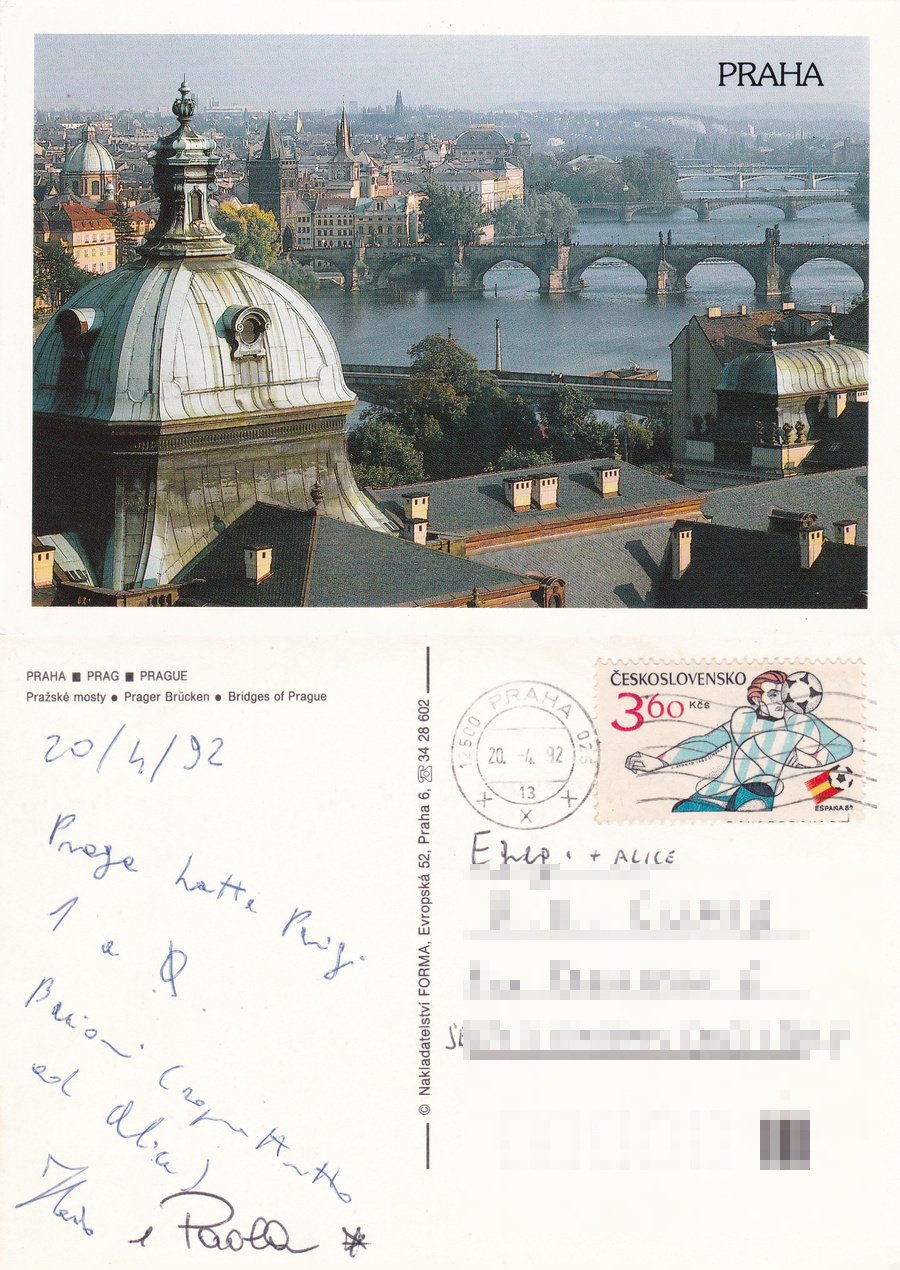 PRAHA
PRAHA ■ PRAG ■ PRAGUE
Pražské mosty ● Prager Brücken ● Bridges of Prague
20/4/92
Praga batte Parigi
1 a 0.
Bacioni (soprattutto
ad Alice)
e Paola
© Nakladatelství FORMA, Evropská 52, Praha 6, ☏ 34 28 602
12500 PRAHA 025
20. -4. 92
13
ČESKOSLOVENSKO
3,60 Kčs
ESPAÑA 82
+ ALICE